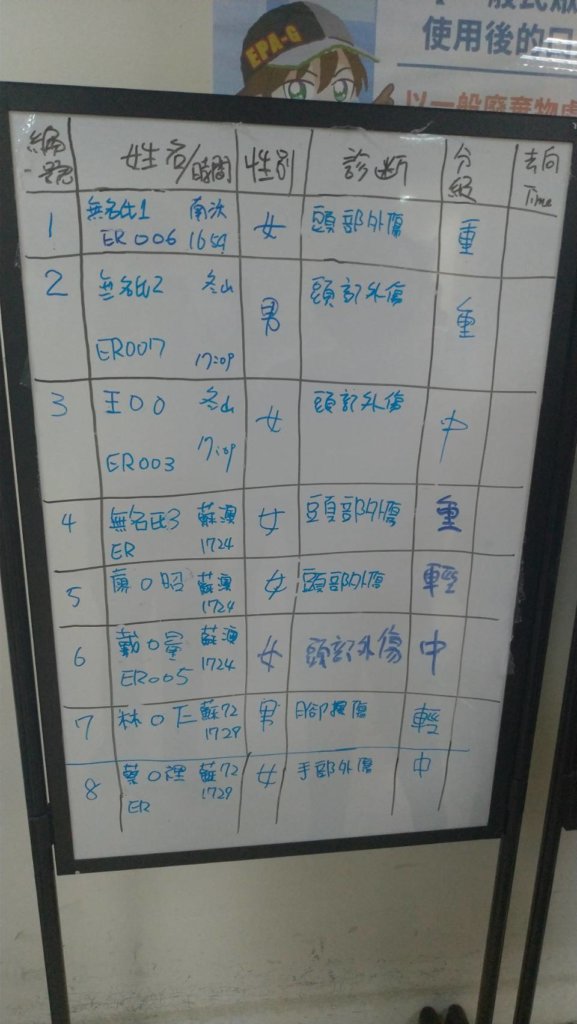 EPA-G
使用後的口
以一般廢棄物處
編號 姓名/時間 性別 診断 分級 去向Time
1 無名氏1 南汰 女 頭部外傷 重
ER006 1659
2 無名氏2 冬山 男 頭部外傷 重
ER007 17:09
3 王OO 冬山 女 頭部外傷 中
ER003 17:09
4 無名氏3 蘇澳 女 頭部外傷 重
ER 1724
5 O昭 蘇澳 女 頭部外傷 輕
1724
6 戴O 蘇澳 女 頭部外傷 中
ER005 1724
7 林O仁 蘇72 男 外傷 輕
1729
8 蔡O 蘇72 女 手部外傷 中
ER 1729